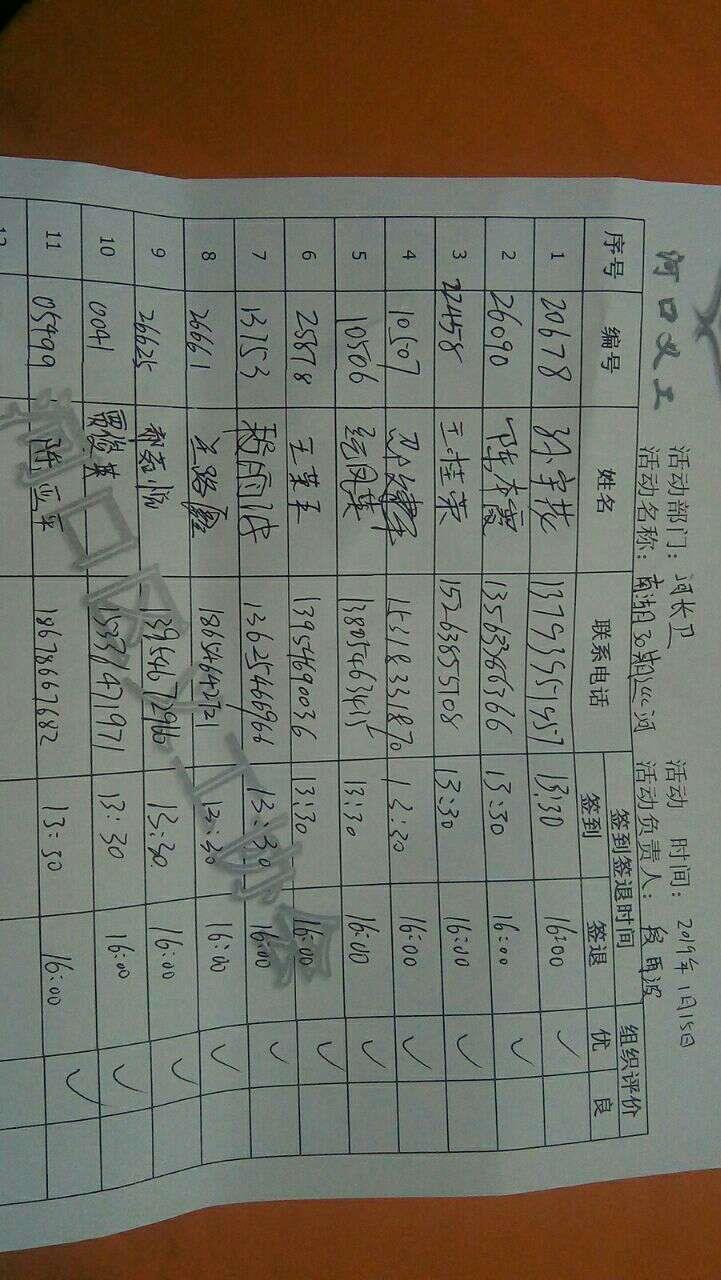 河口义工
活动部门：河长卫 活动 时间：2019年1月15日
活动名称：南湖 活动负责人：
序号 编号 姓名 联系电话 签到签退时间 组织评价
签到 签退 优 良
1 20678 13793951957 13:30 16:00 ✓
2 26090 陈杏霞 13563366366 13:30 16:00 ✓
3 22458 王桂荣 15263855108 13:30 16:00 ✓
4 10507 15318331870 13:30 16:00 ✓
5 10506 13805463415 13:30 16:00 ✓
6 25878 王荣玉 13954690036 13:30 16:00 ✓
7 13753 13625466966 13:30 16:00 ✓
8 26661 18654642721 13:30 16:00 ✓
9 26625 13954672916 13:30 16:00 ✓
10 10041 贾俊英 15337471971 13:30 16:00 ✓
11 05499 陈亚平 18678667682 13:30 16:00 ✓
12
河口区义工协会